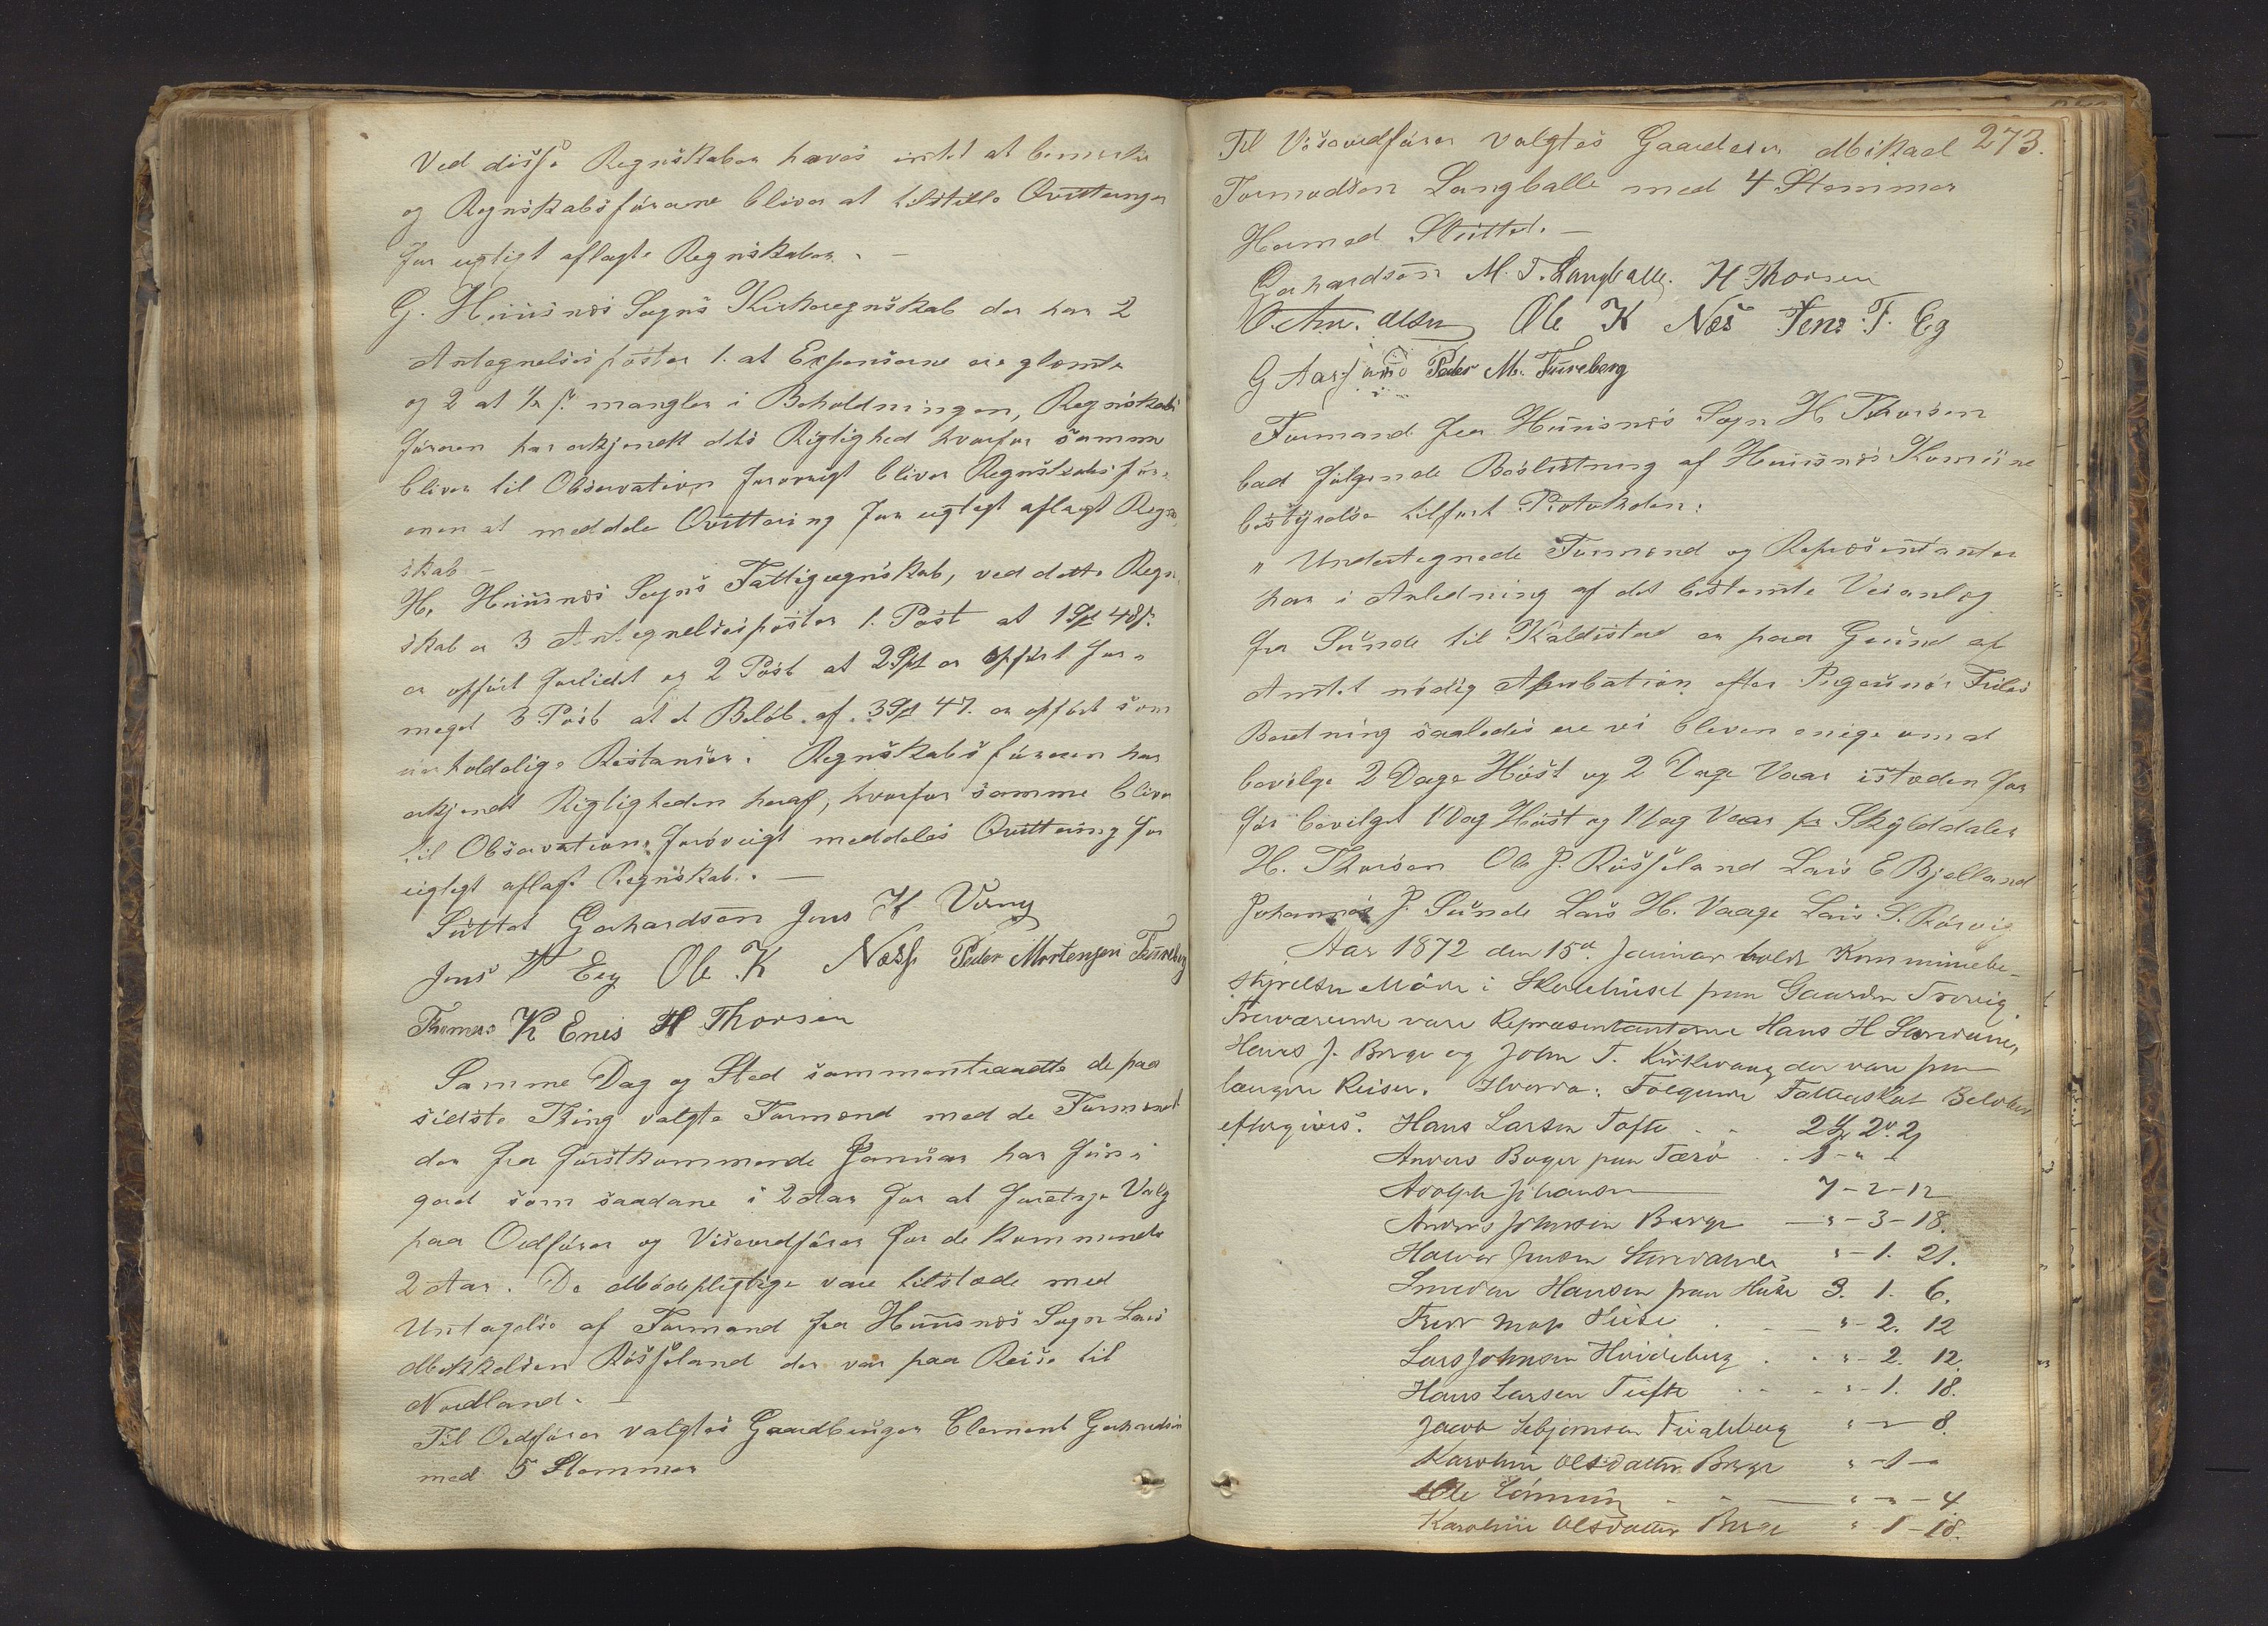 Ved disse Regnskaber haves intet at bemerke
og Regnskabsförerne bliver at tilstille Qvitteringer
for rigtigt aflagte Regnskaber. —
G. Huusnæs Sogns Kirkeregnskab der har 2
Antegnelsesposter 1. at Expenserne ere glemte
og 2 at ½ s. mangler i Beholdningen, Regnskabs
föreren har erkjendt dets Rigtighed hvorfor samme
bliver til Observation forøvrigt bliver Regnskabsför-
eren at meddele Qvittering for rigtigt aflagt Regn-
skab —
H. Huusnæs Sogns Fattigregnskab, ved dette Regn-
skab er 3 Antegnelsesposter 1. Post at 1 Spd 48 s.
er opfört forlidet og 2 Post at 2 Spd er opfört for-
meget 3 Post at et Belöb af 3 Spd 47. er opfört som
uerholdelige Restanser. Regnskabsföreren har
erkjendt Rigtigheden heraf, hvorfor samme bliver
til Observation, forövrigt meddeles Qvittering for
rigtigt aflagt Regnskab. —
Sluttet Gerhardsen Jens H Vang
Jens T Eeg Ole K Næss Peder Mortensen Fureberg
Thomas K Enes H Thorsen
Samme Dag og Sted sammentraadte de paa
sidste Thing valgte Formænd med de Formænd
der fra förstkommende Januar har fun-
gert som saadane i 2 Aar for at foretage Valg
paa Ordförer og Viseordförer for de kommende
2 Aar. De Mödepligtige vare tilstede med
Untagelse af Formand fra Huusnæs Sogn Lars
Mikkelsen Rösseland der var paa Reise til
Nordland. —
Til Ordförer valgtes Gaardbruger Clement Gerhardsen
med 5 Stemmer
273.
Til Viseordförer valgtes Gaardeier Mikael
Tormodsen Langballe med 4 Stemmer
Hermed Sluttet. —
Gerhardsen M. T. Langballe. H Thorsen
Olsen Ole K Næs Jens T. Eg
G Peder M. Fureberg
Formand fra Huusnæs Sogn H. Thorsen
bad fölgende Beslutning af Huusnæs Komune
bestyrelse tilfört Protokolen:
" Undertegnede Formænd og Repræsentanter
har i Anledning af det bestemte Veianlæg
fra Sunde til Kaldestad er paa Grund af
Amtet nödig Aprobation efter
Beretning saaledes ere vi bleven enige om at
bevilge 2 Dage Höst og 2 Dage Vaar istæden for
för bevilget 1 Dag Höst og 1 Dag Vaar pr Skylddaler
H. Thorsen Ole J. Rösseland Lars E Bjelland
Johannes J. Sunde Lars H. Vaage Lars S. Rörvig
Aar 1872 den 15de Januar holdt Kommunebe-
styrelsen Möde i Skolehuset paa Gaarden
Fraværende vare Repræsentanterne Hans H Sandvenes
Hans J. Berge og John T. Kirkevaag der vare paa
længere Reiser. Hvorda: Fölgende Fatteskat Beløber
eftergives. Hans Larsen Tofte . . 2 2. 21
Anders Boger paa Tærö . . 1 - " -
Adolph Johansen — 7 - 2 - 12
Anders Johnsen Berge — " - 3 - 18.
Halvor Jensen " - 1. 21.
Smeden Hansen paa Huse 3. 1. 6.
Huse . — " - 2. 12
Lars Johnsen Hvideberg . . " - 2. 12.
Hans Larsen Tufte . . . " - 1. 18.
Jacob Fureberg " - " - 8.
Karoline Olsdatter Berge " - 1 - "
Ole . . — " - " - 4
Karoline Olsdatter Berge " - 1 - 18.